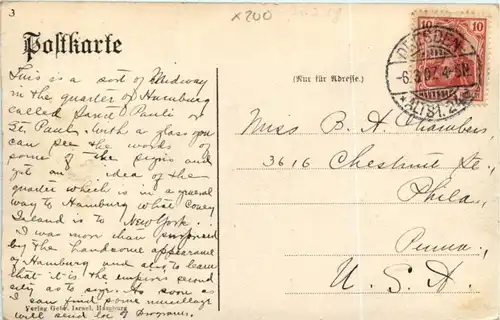 3
x200
Postkarte
This is a sort of Midway
in the quarter of Hamburg
called Sanct Pauli or
St. Paul. With a glass you
can see the words of
some of the signs and
get an idea of the
quarter which is in a general
way to Hamburg what Coney
Island is to New York.
I was more than surprised
by the handsome appearance
of Hamburg and also to learn
that it is the empire's second
city as to size. As soon as
I can find some mucilage
will send lot of programs.
Verlag Gebr. Israel, Hamburg
(Nur für Adresse.)
10 10
DRESDEN
-6.8.07.4-5N.
*ALTST. 24
Miss B. A. Chambers
3616 Chestnut St.,
Phila.,
Penna.,
U. S. A.